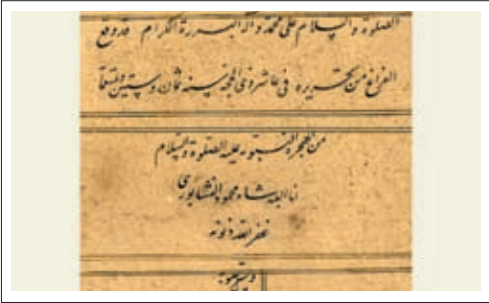 الصلوة والسلام علی محمد وآله البررة الکرام قد وقع
الفراغ من تحریره فی عاشر ذی الحجة سنه ثمان وستین وتسعمأ
من الهجره النبویه علیه الصلوة والسلام
انا العبد شاه محمود النیشابوری
غفر الله ذنوبه